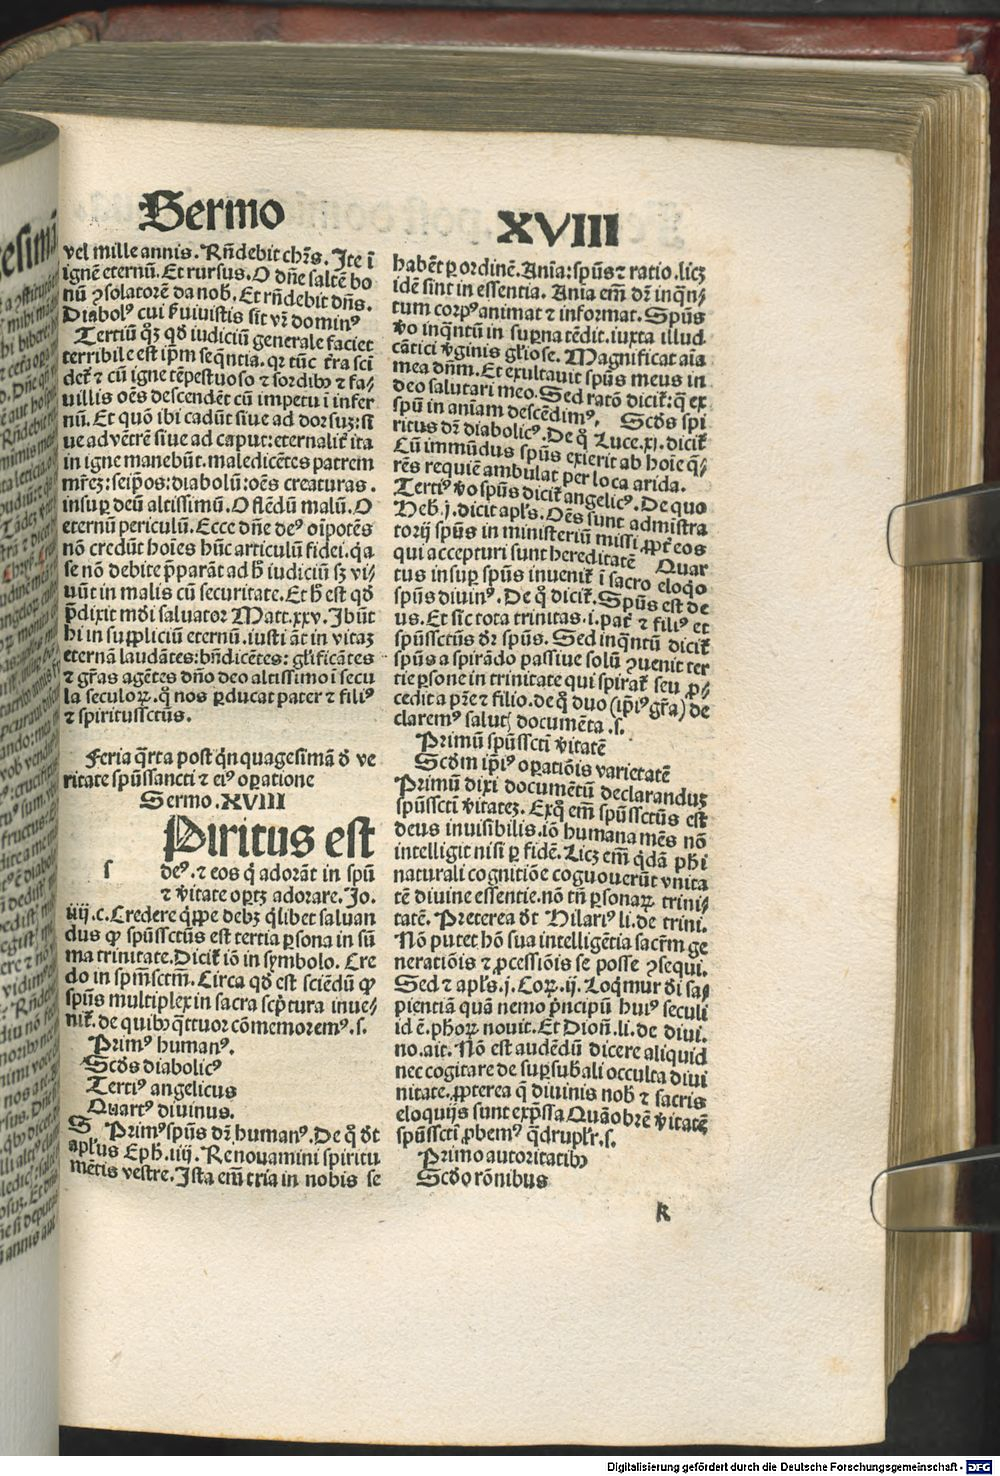 Sermo
XVIII
vel mille annis. Rñdebit chr̄s. Ite ī
ignē eternū. Et rursus. O dñe saltē bo
nū ꝯsolatorē da nob̄. Et rñdebit dñs.
Diabolꝰ cui s̄uiuistis sit vr̄ dominꝰ
Tertiū qꝫ qđ iudiciū generale faciet
terribile est ip̄m seq̄ntia. qꝛ tūc t̄ra sci
det̄ ⁊ cū igne tēpestuoso ⁊ sordibꝰ ⁊ fa⸗
uillis oēs descendēt cū impetu ī infer
nū. Et quō ibi cadūt siue ad dorsuꝫ: si
ue ad vētrē siue ad caput: eternalit̄ ita
in igne manebūt. maledicētes patrem
mr̄eꝫ: seip̄os: diabolū: oēs creaturas.
insuꝑ deū altissimū. O flēdū malū. O
eternū periculū. Ecce dñe deꝰ oīpotēs
nō credūt hoīes hūc articulū fidei. qa
se nō debite p̄parāt ad h̄ iudiciū sꝫ vi⸗
uūt in malis cū securitate. Et h̄ est qđ
p̄dixit mōi saluator Matt. xxv. Ibūt
hi in suppliciū eternū. iusti āt in vitaꝫ
eternā laudātes: bñdicētes: gl̄ificātes
⁊ gr̄as agētes dño deo altissimo ī secu
la seculoꝝ. q̊ nos ꝑducat pater ⁊ filiꝰ
⁊ spiritussctūs.
Feria q̄rta post qñquagesimā đ ve
ritate spūssancti ⁊ eiꝰ oꝑatione
Sermo. XVIII
Piritus est
s
deꝰ. ⁊ eos q̄ adorāt in spū
⁊ v̄itate oꝑtꝫ adorare. Jo.
iiij. c. Credere q̄ppe debꝫ q̄libet saluan
dus ꝙ spūssctūs est tertia ꝑsona in sū
ma trinitate. Dicit̄ iō in symbolo. Cre
do in spm̄sctm̄. Circa qđ est sciēdū ꝙ
spūs multiplex in sacra scp̄tura inue⸗
nit̄. de quibꝰ q̄ttuor cōmemoremꝰ. s.
Primꝰ humanꝰ.
Scđs diabolicꝰ
Tertiꝰ angelicus
Quartꝰ diuinus.
S Primꝰ spūs dr̄ humanꝰ. De q̊ đt
apl̄us Eph. iiij. Renouamini spiritu
mētis vestre. Ista em̄ tria in nobis se
habēt ꝑ ordinē. Aīa: spūs ⁊ ratio. licꝫ
idē sint in essentia. Aīa em̄ dr̄ inq̄n⸗
tum corpꝰ animat ⁊ informat. Spūs
v̄o inq̄ntū in suꝑna tēdit. iuxta illud
cātici v̄ginis gl̄iose. Magnificat aīa
mea dñm. Et exultauit spūs meus in
deo salutari meo. Sed ratō dicit̄: q̄ ex
spū in aniam descēdimꝰ. Scđs spi
ritus dr̄ diabolicꝰ. De q̊ Luce. xi. dicit̄
Cū immūdus spūs exierit ab hoīe q̄⸗
rēs requiē ambulat per loca arida.
Tertiꝰ v̄o spūs dicit̄ angelicꝰ. De quo
Heb. j. dicit apl̄s. Oēs sunt admīstra
torij spūs in ministeriū missi ꝓpt̄ eos
qui accepturi sunt hereditatē Quar
tus insuꝑ spūs inuenit̄ ī sacro eloqo
spūs diuinꝰ. De q̊ dicit̄. Spūs est de
us. Et sic tota trinitas. i. pat̄ ⁊ filiꝰ et
spūssctūs dr̄ spūs. Sed inqntū dicit̄
spūs a spirādo passiue solū ꝯuenit ter
tie ꝑsone in trinitate qui spirat̄ seu ꝓ⸗
cedit a pr̄e ⁊ filio. de q̊ duo (ip̄iꝰ gr̄a) de
claremꝰ saluti documēta. s.
Primū spūssctī v̄itatē
Scđm ip̄iꝰ oꝑatiōis varietatē
Primū dixi documētū declaranduꝫ
spūssctī v̄itateꝫ. Ex q̊ em̄ spūssctūs est
deus inuisibilis. iō humana mēs nō
intelligit nisi ꝑ fidē. Licꝫ em̄ q̄dā phi
naturali cognitiōe coguouerūt vnita
tē diuine essentie. nō tñ ꝑsonaꝝ trini⸗
tatē. Preterea đt Hilariꝰ li. de trini.
Nō putet hō sua intelligētia sacr̄m ge
neratiōis ⁊ ꝓcessiōis se posse ꝯsequi.
Sed ⁊ apl̄s. j. Coꝝ. ij. Loqmur đi sa⸗
pientiā quā nemo p̄ncipū huiꝰ seculi
id ē. phoꝝ nouit. Et Dioñ. li. de diui.
no. ait. Nō est audēdū dicere aliquid
nec cogitare de suꝑsub̄ali occulta diui
nitate. ꝓpterea q̄ diuinis nob̄ ⁊ sacris
eloquijs sunt exp̄ssa Quāobrē v̄itatē
spūssctī ꝓbemꝰ q̄druplr̄. s.
Primo autoritatibꝰ
Scđo rōnibus
k
Digitalisierung gefördert durch die Deutsche Forschungsgemeinschaft - DFG